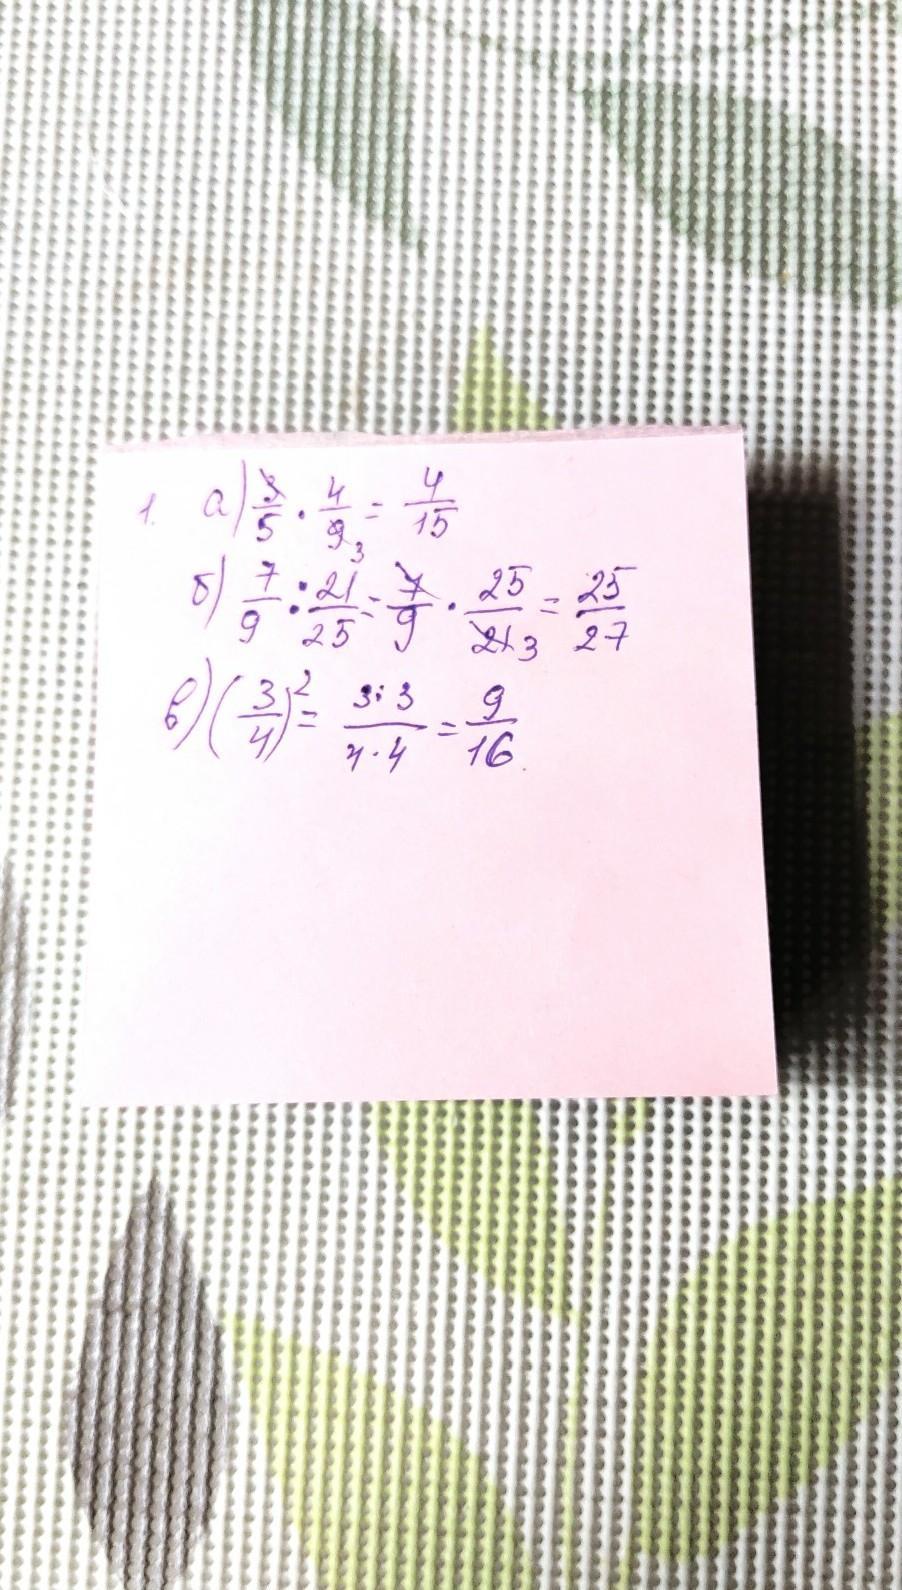 1. а) 3/5 · 4/9 3 = 4/15
б) 7/9 : 21/25 = 7/9 · 25/21 3 = 25/27
в) (3/4)² = 3·3/4·4 = 9/16.